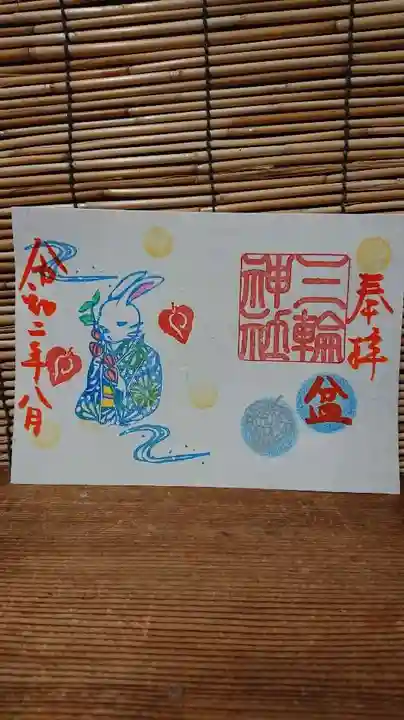 奉拝
三輪
神社
盆
令和二年八月